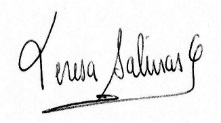 Teresa Salinas C